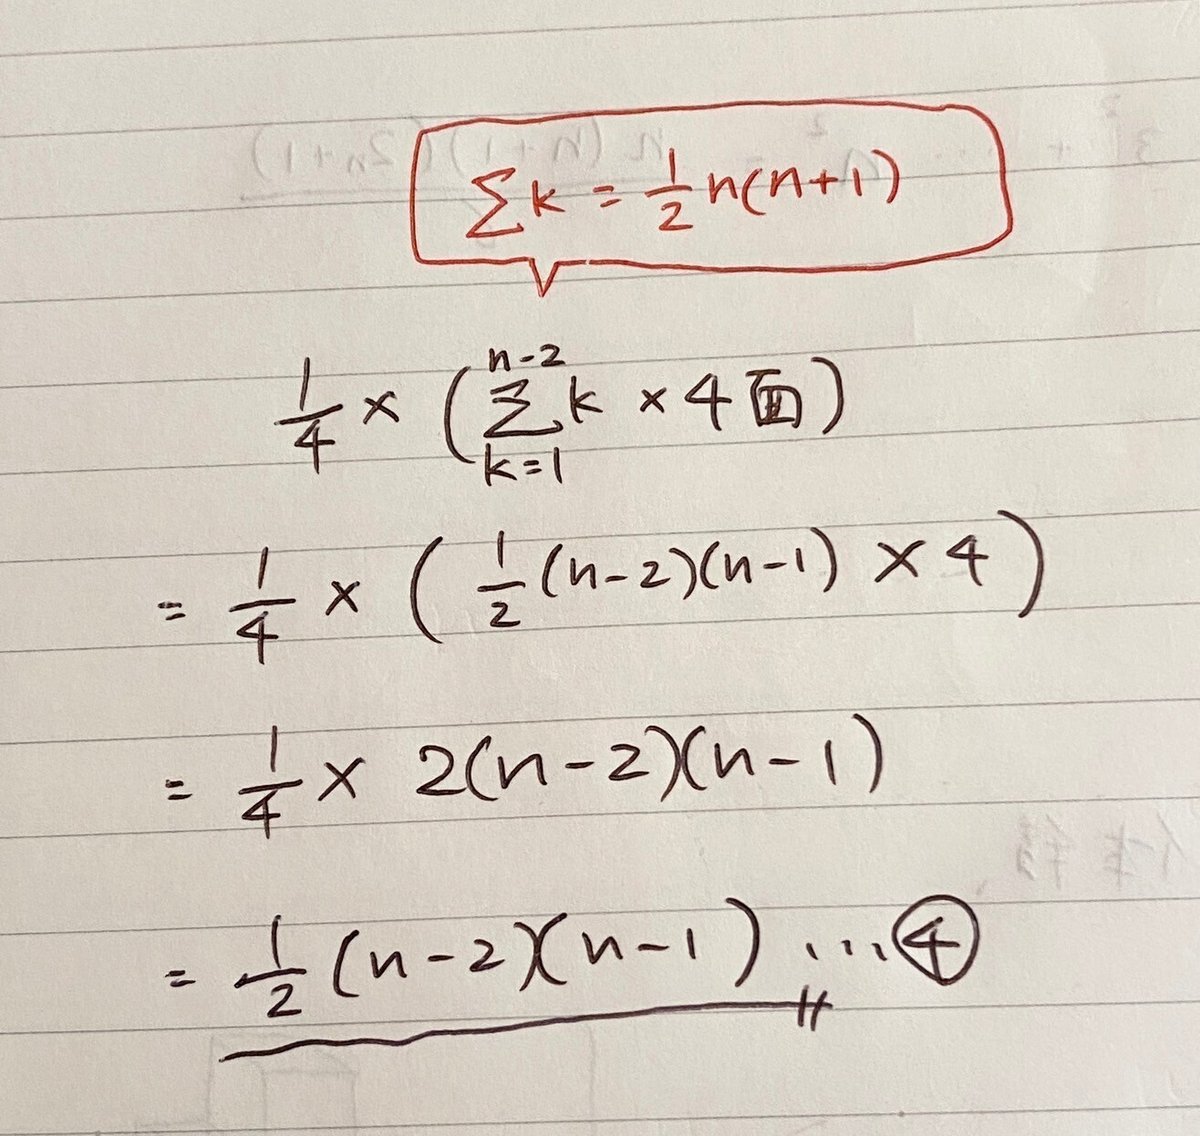 ∑k = 1/2 n(n+1)
1/4 × (∑_{k=1}^{n-2} k × 4面)
= 1/4 × (1/2 (n-2)(n-1) × 4)
= 1/4 × 2(n-2)(n-1)
= 1/2 (n-2)(n-1) ... ④